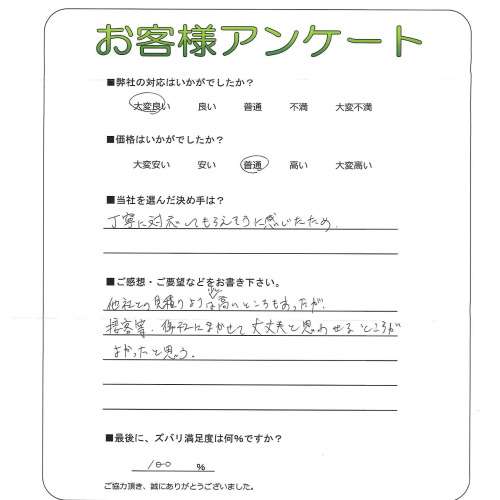 お客様アンケート
■弊社の対応はいかがでしたか？
大変良い 良い 普通 不満 大変不満
■価格はいかがでしたか？
大変安い 安い 普通 高い 大変高い
■当社を選んだ決め手は？
丁寧に対応してもらえそうに感じたため。
■ご感想・ご要望などをお書き下さい。
他社との見積りよりは高いところもあったが、
接客等、御社にまかせて大丈夫と思わせるところが
よかったと思う。
■最後に、ズバリ満足度は何%ですか？
100 %
ご協力頂き、誠にありがとうございました。